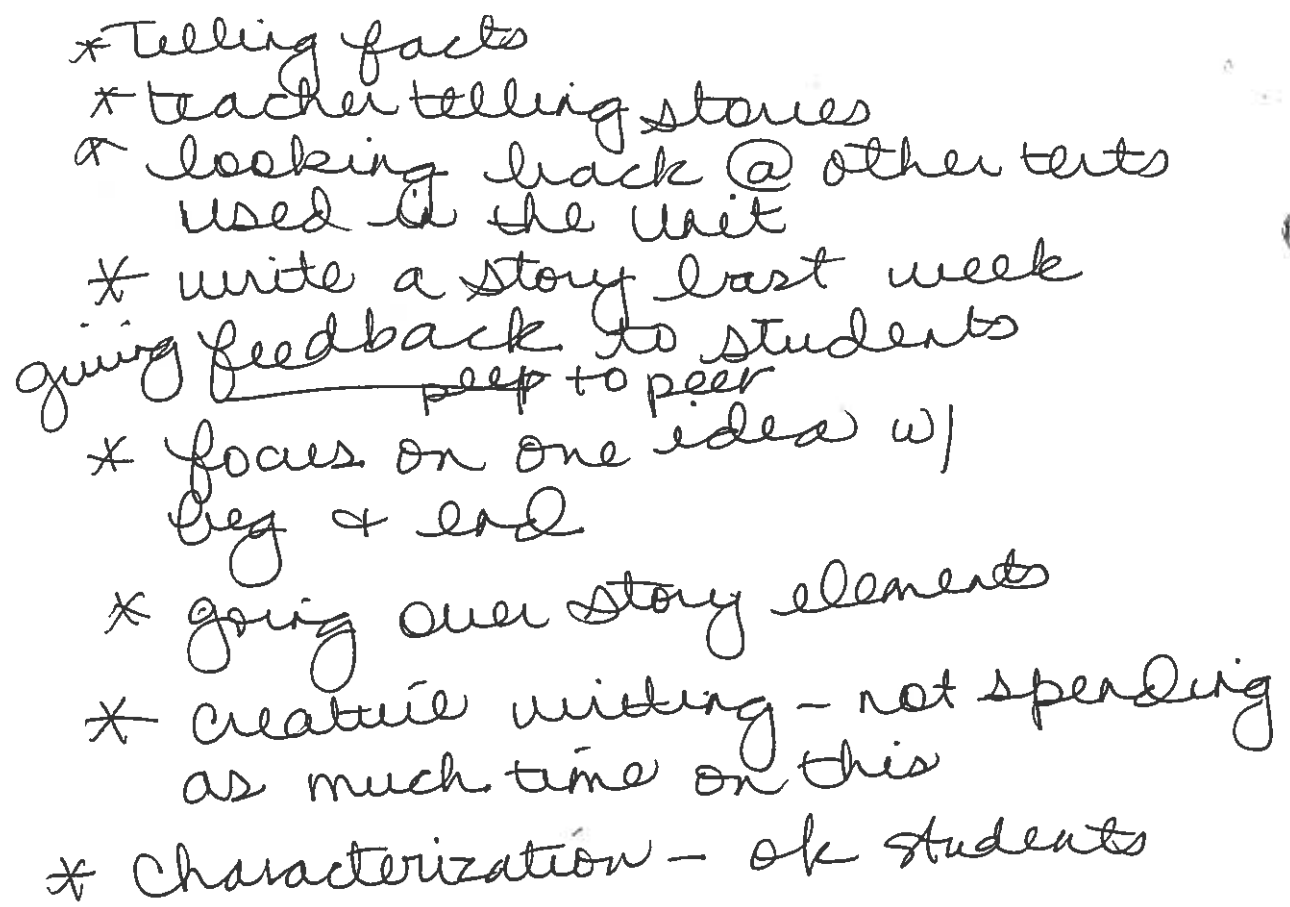 * Telling facts
* teacher telling stories
* looking back @ other texts
used in the unit
* write a story last week
giving feedback to students
peep to peer
* focus on one idea w/
beg + end
* going over story elements
* creative writing - not spending
as much time on this
* Characterization - ok students